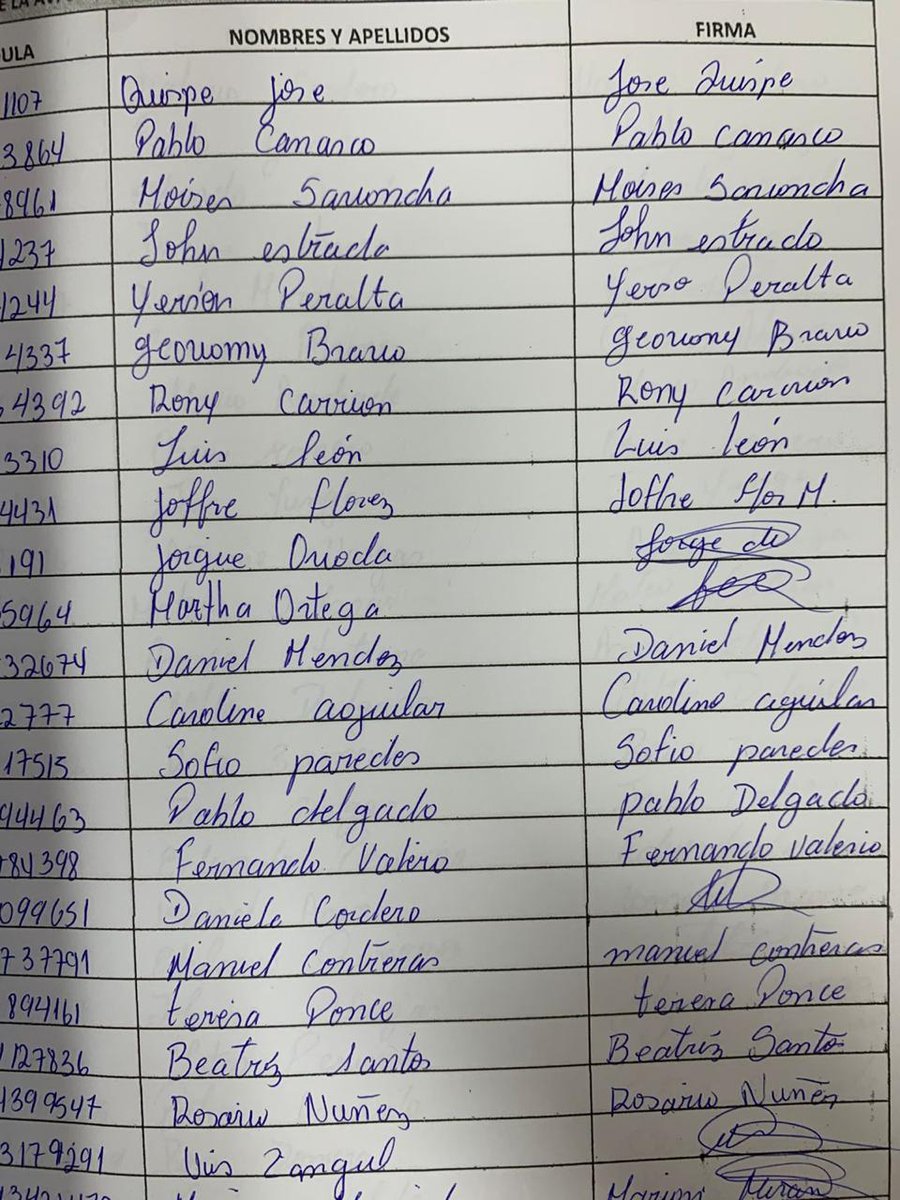 ULA NOMBRES Y APELLIDOS FIRMA
1107 Quispe jose Jose Quispe
3864 Pablo Canasco Pablo canasco
8961 Moises Saruoncha Moises Saruoncha
1237 John estrada John estrado
1244 Yerion Peralta Yerso Peralta
4337 geouomy Bravo geouony Bravo
4392 Rony Carrion Rony Carrion
3310 Luis león Luis león
4431 Joffre flores Joffre flor M.
191 Jorgue Onoda Jorge
5964 Martha Ortega
32674 Daniel Mendez Daniel Mendez
2777 Caroline aguilar Carolino aguilar
17515 Sofio paredes Sofio paredes
94463 Pablo delgado pablo Delgado
784398 Fernando Valerio Fernando valerio
099651 Daniele Cordero
737791 Manuel Contreras manuel contreras
894161 teresa Ponce teresa Ponce
127836 Beatriz Santos Beatriz Santos
1399547 Rosario Nuñez Rosario Nuñez
3179291 Luis